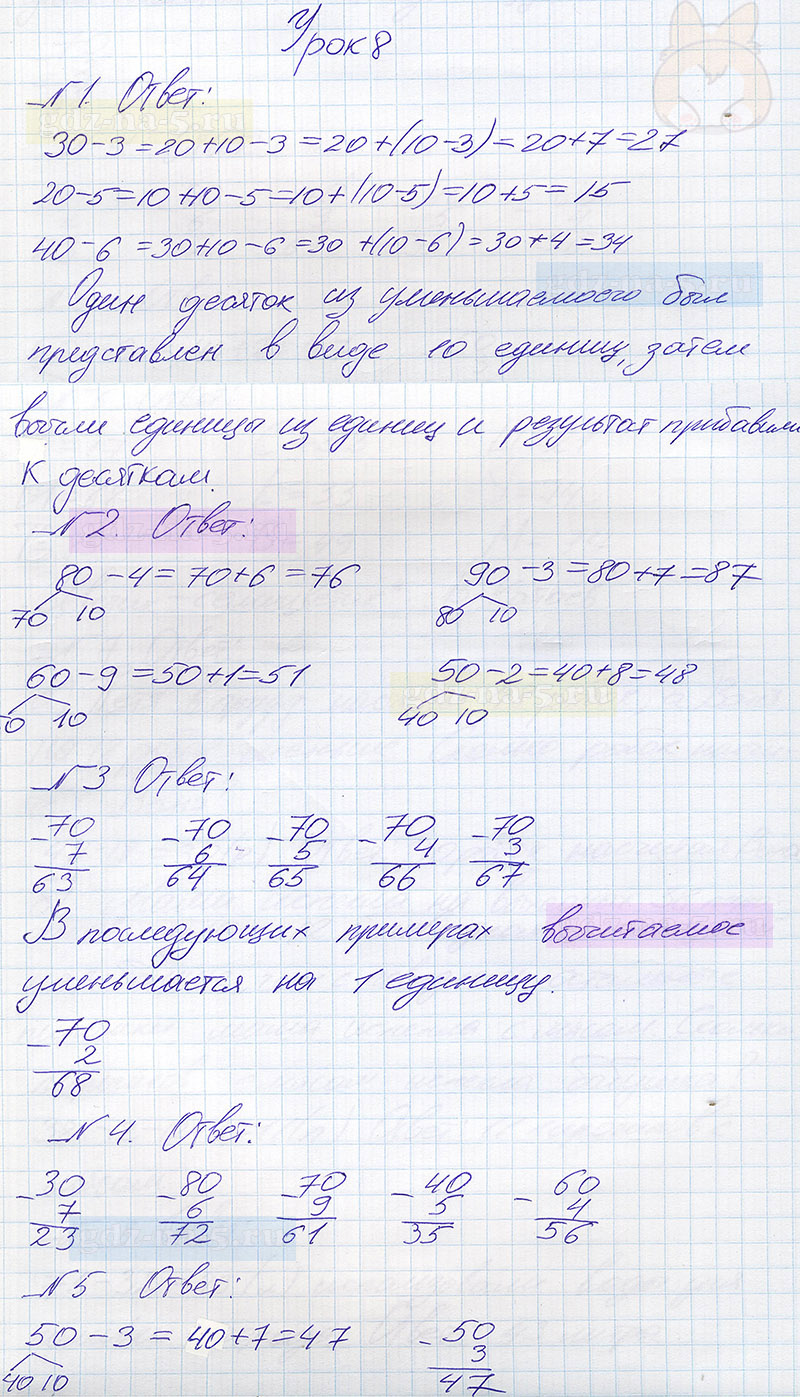 Урок 8
№1. Ответ:
30-3=20+10-3=20+(10-3)=20+7=27
20-5=10+10-5=10+(10-5)=10+5=15
40-6=30+10-6=30+(10-6)=30+4=34
Один десяток из уменьшаемоего был
представлен в виде 10 единиц, затем
вычли единицы из единиц и результат прибавили
к десяткам.
№2. Ответ:
80-4=70+6=76 90-3=80+7=87
70 10 80 10
60-9=50+1=51 50-2=40+8=48
0 10 40 10
№3 Ответ:
-70 -70 -70 -70 -70
7 6 5 4 3
63 64 65 66 67
В последующих примерах вычитаемое
уменьшается на 1 единицу.
-70
2
68
№4. Ответ:
-30 -80 -70 -40 -60
7 6 9 5 4
23 72 61 35 56
№5 Ответ:
50-3=40+7=47 -50
40 10 3
47